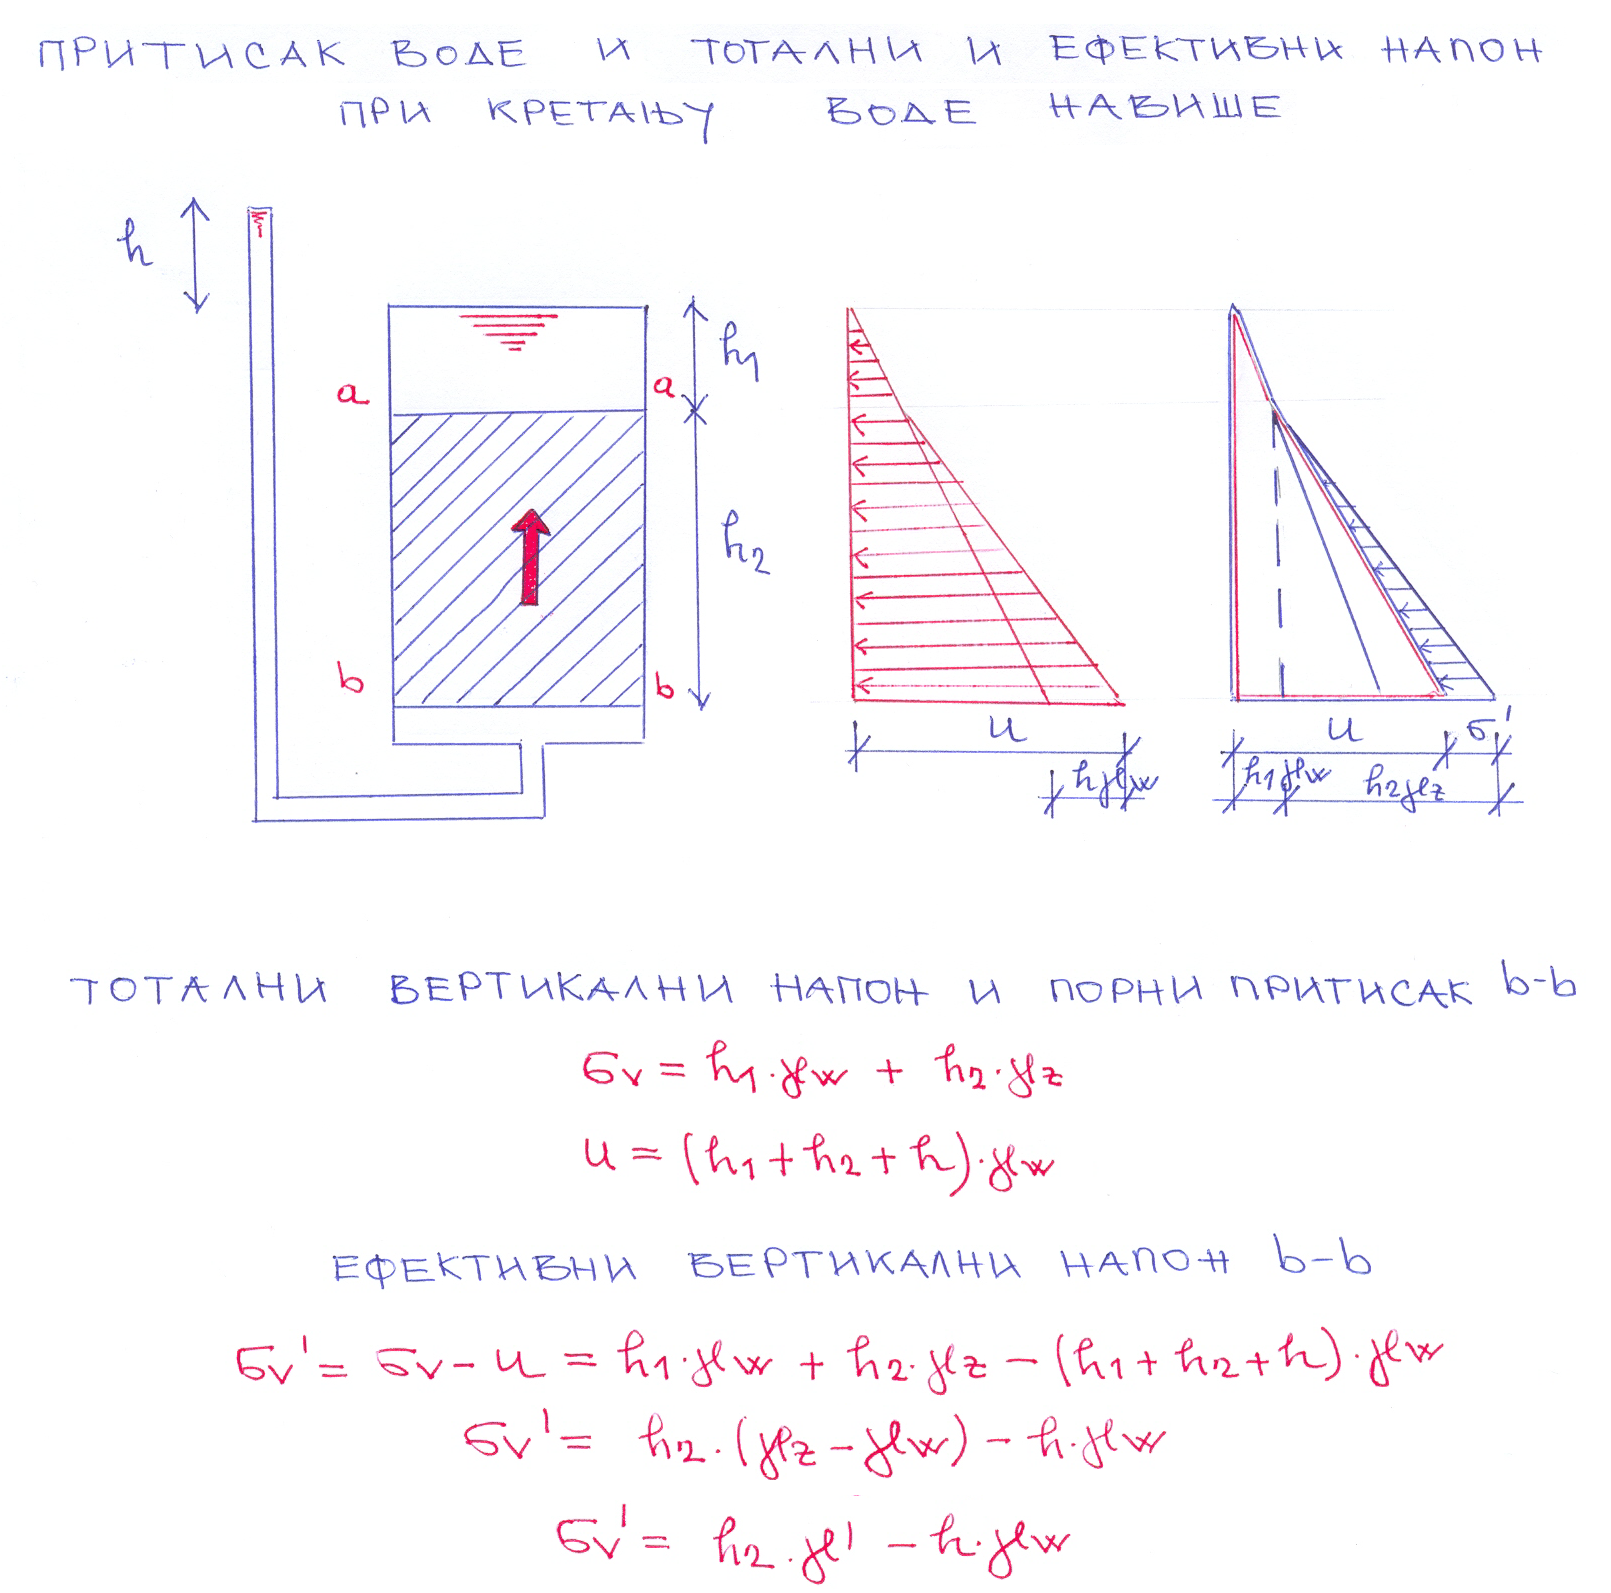 ПРИТИСАК ВОДЕ И ТОТАЛНИ И ЕФЕКТИВНИ НАПОН
ПРИ КРЕТАЊУ ВОДЕ НАВИШЕ
h
h1
a a
h2
b b
u
hγw
u σ'
h1γw h2γz
ТОТАЛНИ ВЕРТИКАЛНИ НАПОН И ПОРНИ ПРИТИСАК b-b
σv = h1·γw + h2·γz
u = (h1+h2+h)·γw
ЕФЕКТИВНИ ВЕРТИКАЛНИ НАПОН b-b
σv' = σv - u = h1·γw + h2·γz - (h1+h2+h)·γw
σv' = h2·(γz-γw) - h·γw
σv' = h2·γ' - h·γw